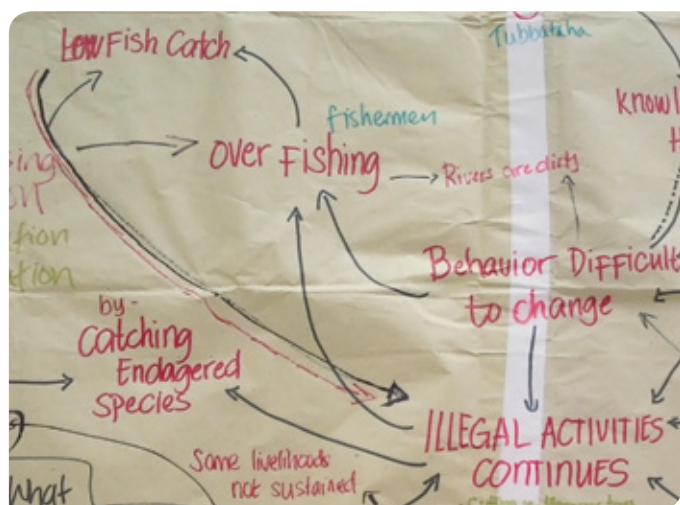 Low Fish Catch
Tubbataha
fishermen
Over Fishing
Rivers are dirty
Behavior Difficult
to change
by-
Catching
Endagered
species
ILLEGAL ACTIVITIES
CONTINUES
Some livelihoods
not sustained
What